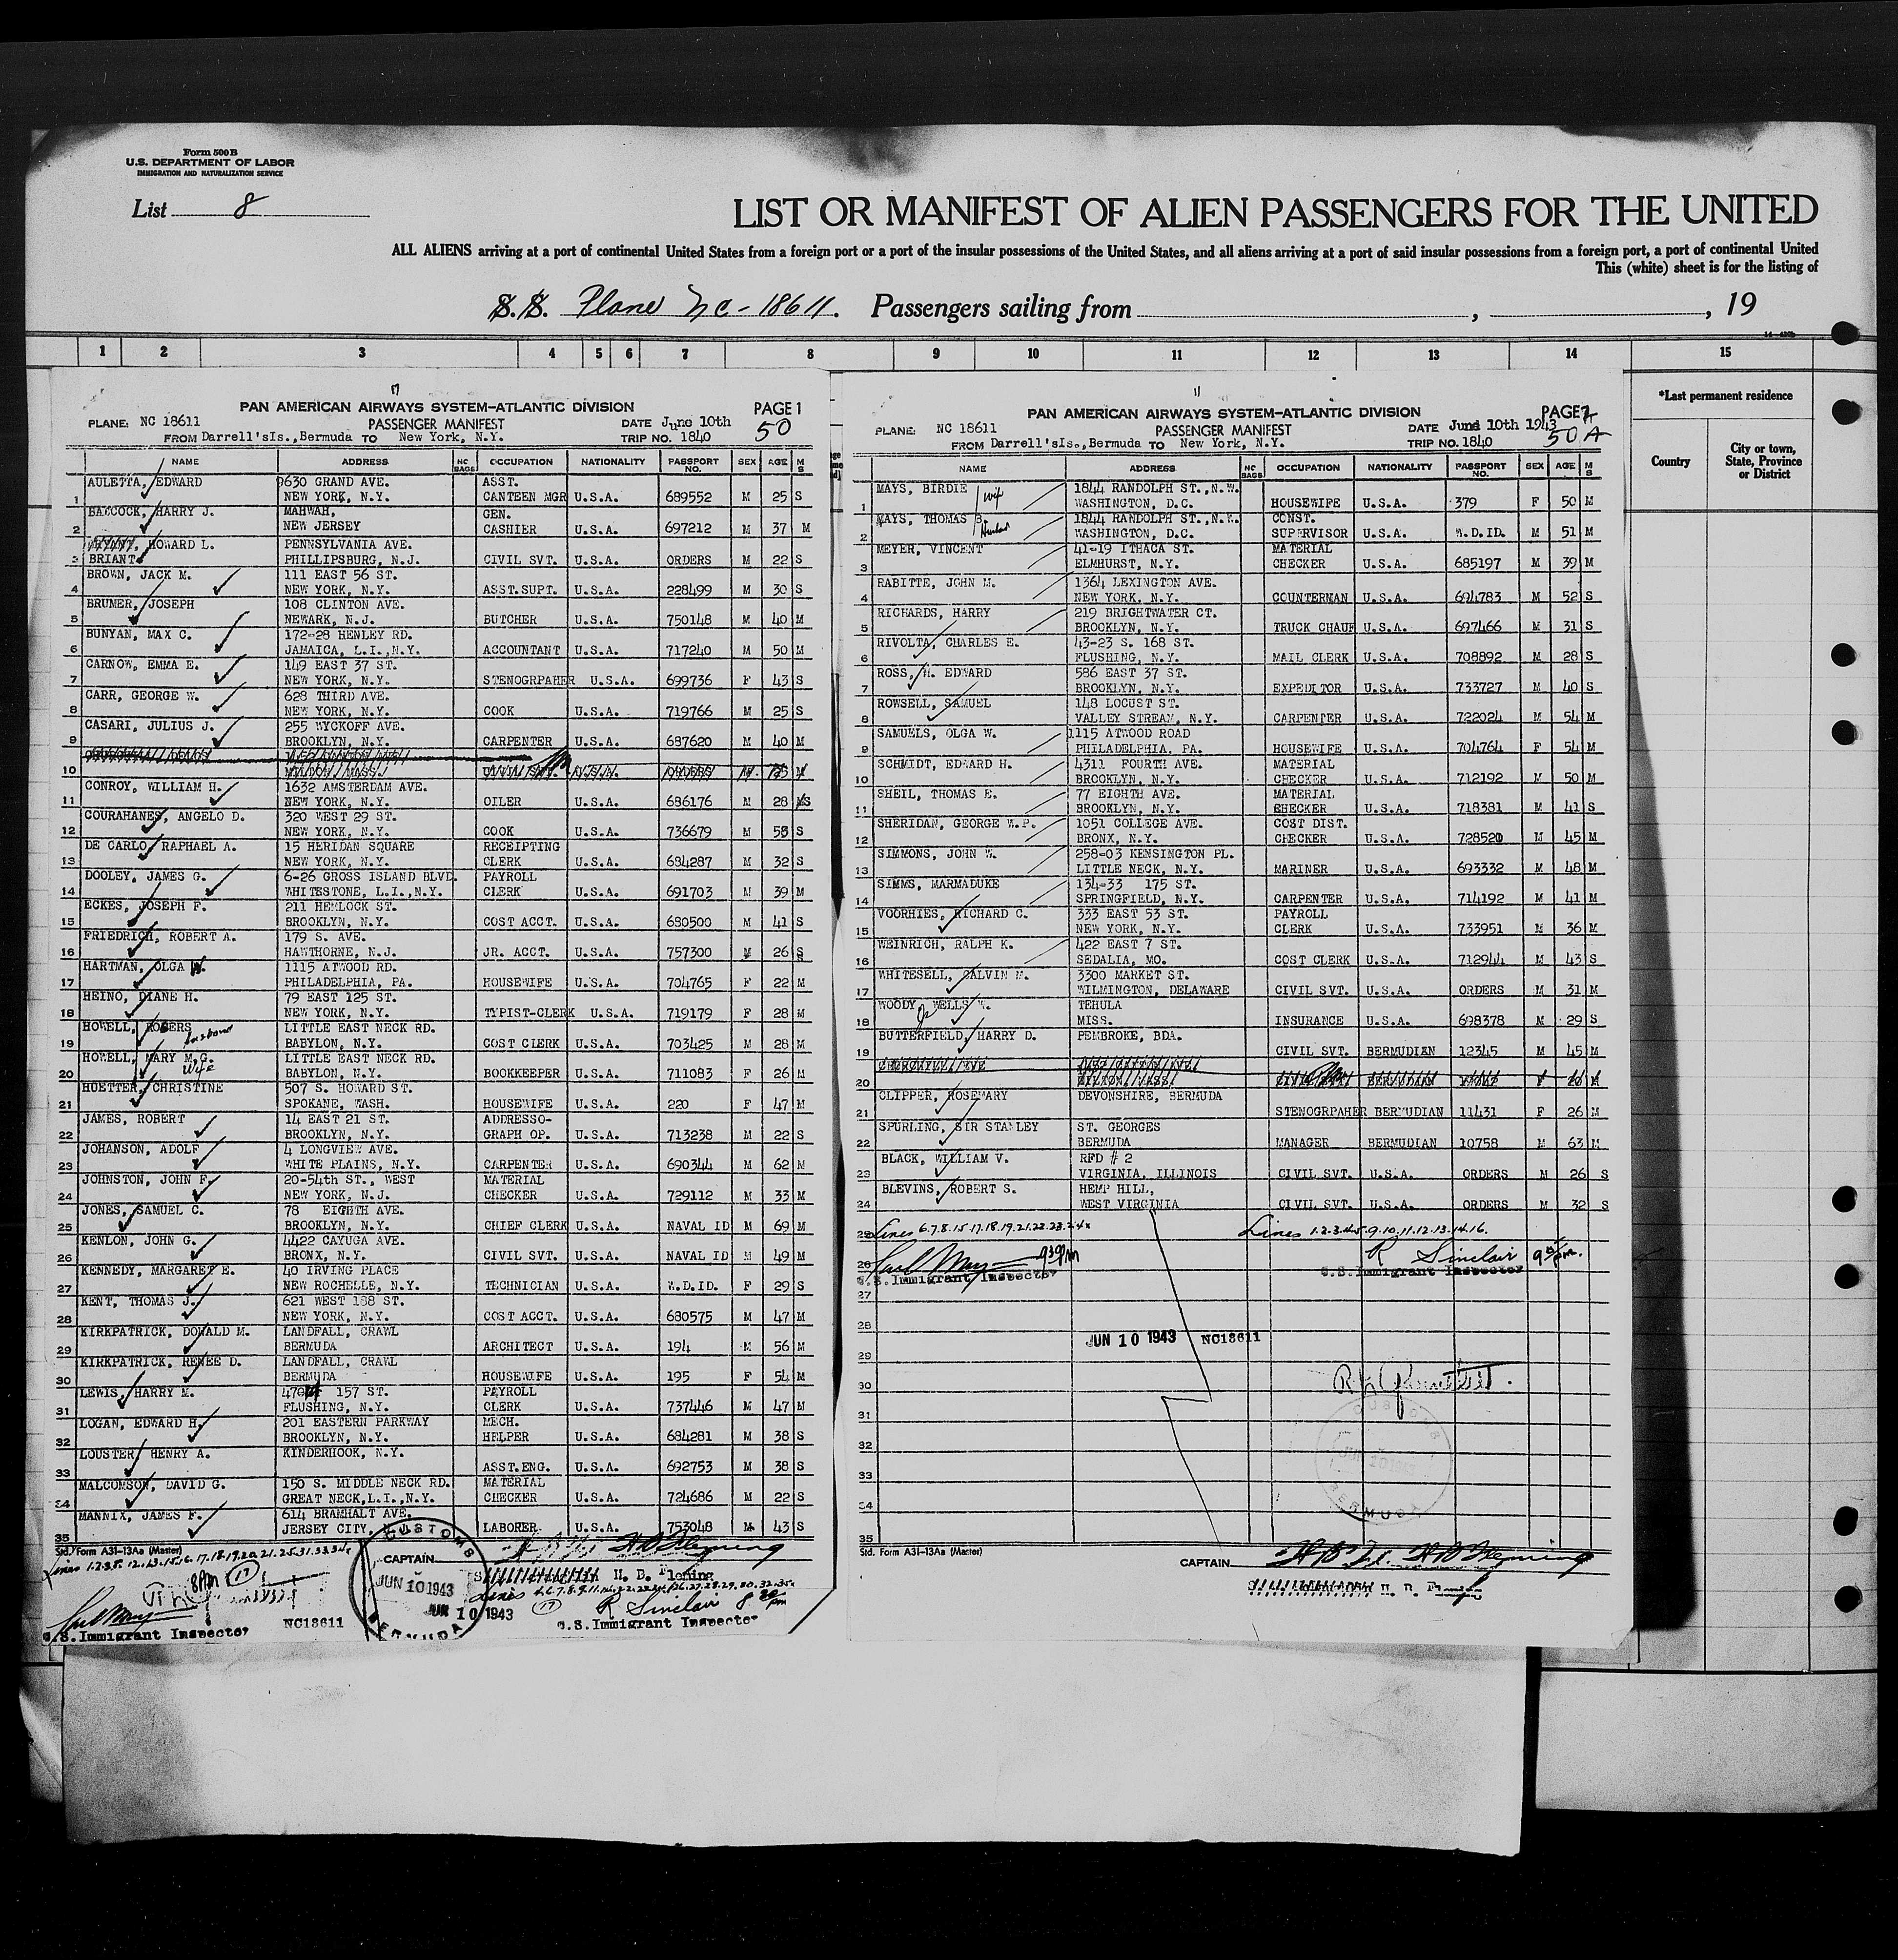 Form 500 B
U.S. DEPARTMENT OF LABOR
IMMIGRATION AND NATURALIZATION SERVICE
List 8
LIST OR MANIFEST OF ALIEN PASSENGERS FOR THE UNITED
ALL ALIENS arriving at a port of continental United States from a foreign port or a port of the insular possessions of the United States, and all aliens arriving at a port of said insular possessions from a foreign port, a port of continental United
This (white) sheet is for the listing of
S.S. Plane NC-18611. Passengers sailing from , , 19
1 2 3 4 5 6 7 8 9 10 11 12 13 14 15
*Last permanent residence
Country City or town, State, Province or District
PAN AMERICAN AIRWAYS SYSTEM-ATLANTIC DIVISION PAGE 1
PLANE: NC 18611 PASSENGER MANIFEST DATE June 10th 50
FROM Darrell'sIs.,Bermuda TO New York, N.Y. TRIP NO. 1840
NAME ADDRESS NC BAGS OCCUPATION NATIONALITY PASSPORT NO. SEX AGE M S
AULETTA, EDWARD 9630 GRAND AVE. ASST.
1 NEW YORK, N.Y. CANTEEN MGR U.S.A. 689552 M 25 S
BABCOCK, HARRY J. MAHWAH, GEN.
2 NEW JERSEY CASHIER U.S.A. 697212 M 37 M
HOWARD L. PENNSYLVANIA AVE.
3 BRIANT PHILLIPSBURG, N.J. CIVIL SVT. U.S.A. ORDERS M 22 S
BROWN, JACK M. 111 EAST 56 ST.
4 NEW YORK, N.Y. ASST.SUPT. U.S.A. 228499 M 30 S
BRUMER, JOSEPH 108 CLINTON AVE.
5 NEWARK, N.J. BUTCHER U.S.A. 750148 M 40 M
BUNYAN, MAX C. 172-28 HENLEY RD.
6 JAMAICA, L.I.,N.Y. ACCOUNTANT U.S.A. 717240 M 50 M
CARNOW, EMMA E. 149 EAST 37 ST.
7 NEW YORK, N.Y. STENOGRPAHER U.S.A. 699736 F 43 S
CARR, GEORGE W. 628 THIRD AVE.
8 NEW YORK, N.Y. COOK U.S.A. 719766 M 25 S
CASARI, JULIUS J. 255 WYCKOFF AVE.
9 BROOKLYN, N.Y. CARPENTER U.S.A. 687620 M 40 M
10
CONROY, WILLIAM H. 1632 AMSTERDAM AVE.
11 NEW YORK, N.Y. OILER U.S.A. 686176 M 28 S
COURAHANES, ANGELO D. 320 WEST 29 ST.
12 NEW YORK, N.Y. COOK U.S.A. 736679 M 58 S
DE CARLO, RAPHAEL A. 15 HERIDAN SQUARE RECEIPTING
13 NEW YORK, N.Y. CLERK U.S.A. 684287 M 32 S
DOOLEY, JAMES G. 6-26 GROSS ISLAND BLVD. PAYROLL
14 WHITESTONE, L.I.,N.Y. CLERK U.S.A. 691703 M 39 M
ECKES, JOSEPH F. 211 HEMLOCK ST.
15 BROOKLYN, N.Y. COST ACCT. U.S.A. 680500 M 41 S
FRIEDRICH, ROBERT A. 179 S. AVE.
16 HAWTHORNE, N.J. JR. ACCT. U.S.A. 757300 M 26 S
HARTMAN, OLGA W. 1115 ATWOOD RD.
17 PHILADELPHIA, PA. HOUSEWIFE U.S.A. 704765 F 22 M
HEINO, DIANE H. 79 EAST 125 ST.
18 NEW YORK, N.Y. TYPIST-CLERK U.S.A. 719179 F 28 M
HOWELL, ROGERS husband LITTLE EAST NECK RD.
19 BABYLON, N.Y. COST CLERK U.S.A. 703425 M 28 M
HOWELL, MARY M.G. LITTLE EAST NECK RD.
20 wife BABYLON, N.Y. BOOKKEEPER U.S.A. 711083 F 26 M
HUETTER, CHRISTINE 507 S. HOWARD ST.
21 SPOKANE, WASH. HOUSEWIFE U.S.A. 220 F 47 M
JAMES, ROBERT 14 EAST 21 ST. ADDRESSO-
22 BROOKLYN, N.Y. GRAPH OP. U.S.A. 713238 M 22 S
JOHANSON, ADOLF 4 LONGVIEW AVE.
23 WHITE PLAINS, N.Y. CARPENTER U.S.A. 690344 M 62 M
JOHNSTON, JOHN F. 20-54th ST., WEST MATERIAL
24 NEW YORK, N.J. CHECKER U.S.A. 729112 M 33 M
JONES, SAMUEL C. 78 EIGHTH AVE.
25 BROOKLYN, N.Y. CHIEF CLERK U.S.A. NAVAL ID M 69 M
KENLON, JOHN G. 4422 CAYUGA AVE.
26 BRONX, N.Y. CIVIL SVT. U.S.A. NAVAL ID M 49 M
KENNEDY, MARGARET E. 40 IRVING PLACE
27 NEW ROCHELLE, N.Y. TECHNICIAN U.S.A. W.D.ID. F 29 S
KENT, THOMAS J. 621 WEST 188 ST.
28 NEW YORK, N.Y. COST ACCT. U.S.A. 680575 M 47 M
KIRKPATRICK, DONALD M. LANDFALL, CRAWL
29 BERMUDA ARCHITECT U.S.A. 194 M 56 M
KIRKPATRICK, RENEE D. LANDFALL, CRAWL
30 BERMUDA HOUSEWIFE U.S.A. 195 F 54 M
LEWIS, HARRY M. 157 ST. PAYROLL
31 FLUSHING, N.Y. CLERK U.S.A. 737446 M 47 M
LOGAN, EDWARD H. 201 EASTERN PARKWAY MECH.
32 BROOKLYN, N.Y. HELPER U.S.A. 684281 M 38 S
LOUSTER, HENRY A. KINDERHOOK, N.Y.
33 ASST.ENG. U.S.A. 692753 M 38 S
MALCOMSON, DAVID G. 150 S. MIDDLE NECK RD. MATERIAL
34 GREAT NECK,L.I.,N.Y. CHECKER U.S.A. 724686 M 22 S
MANNIX, JAMES F. 614 BRAMHALT AVE.
35 JERSEY CITY, LABORER U.S.A. 753048 M 43 S
Std. Form A31-13Aa (Master)
CAPTAIN H B Fleming
H. B. Fleming
Lines
8PM 17
CUSTOMS JUN 10 1943 BERMUDA
JUN 10 1943
17 R Sinclair 8 30 pm
U.S.Immigrant Inspector NC18611 U.S.Immigrant Inspector
PAN AMERICAN AIRWAYS SYSTEM-ATLANTIC DIVISION PAGE
PLANE: NC 18611 PASSENGER MANIFEST DATE June 10th 1943 50 A
FROM Darrell'sIs.,Bermuda TO New York, N.Y. TRIP NO. 1840
NAME ADDRESS NC BAGS OCCUPATION NATIONALITY PASSPORT NO. SEX AGE M S
MAYS, BIRDIE wife 1844 RANDOLPH ST.,N.W.
1 WASHINGTON, D.C. HOUSEWIFE U.S.A. 379 F 50 M
MAYS, THOMAS B. Husband 1844 RANDOLPH ST.,N.W. CONST.
2 WASHINGTON, D.C. SUPERVISOR U.S.A. W.D.ID. M 51 M
MEYER, VINCENT 41-19 ITHACA ST. MATERIAL
3 ELMHURST, N.Y. CHECKER U.S.A. 685197 M 39 M
RABITTE, JOHN M. 1364 LEXINGTON AVE.
4 NEW YORK, N.Y. COUNTERMAN U.S.A. 694783 M 52 S
RICHARDS, HARRY 219 BRIGHTWATER CT.
5 BROOKLYN, N.Y. TRUCK CHAUF U.S.A. 697466 M 31 S
RIVOLTA, CHARLES E. 43-23 S. 168 ST.
6 FLUSHING, N.Y. MAIL CLERK U.S.A. 708892 M 28 S
ROSS, H. EDWARD 586 EAST 37 ST.
7 BROOKLYN, N.Y. EXPEDITOR U.S.A. 733727 M 40 S
ROWSELL, SAMUEL 148 LOCUST ST.
8 VALLEY STREAM, N.Y. CARPENTER U.S.A. 722024 M 54 M
SAMUELS, OLGA W. 1115 ATWOOD ROAD
9 PHILADELPHIA, PA. HOUSEWIFE U.S.A. 704764 F 54 M
SCHMIDT, EDWARD H. 4311 FOURTH AVE. MATERIAL
10 BROOKLYN, N.Y. CHECKER U.S.A. 712192 M 50 M
SHEIL, THOMAS E. 77 EIGHTH AVE. MATERIAL
11 BROOKLYN, N.Y. CHECKER U.S.A. 718381 M 41 S
SHERIDAN, GEORGE W.P. 1051 COLLEGE AVE. COST DIST.
12 BRONX, N.Y. CHECKER U.S.A. 728520 M 45 M
SIMMONS, JOHN W. 258-03 KENSINGTON PL.
13 LITTLE NECK, N.Y. MARINER U.S.A. 693332 M 48 M
SIMMS, MARMADUKE 134-33 175 ST.
14 SPRINGFIELD, N.Y. CARPENTER U.S.A. 714192 M 41 M
VOORHIES, RICHARD C. 333 EAST 53 ST. PAYROLL
15 NEW YORK, N.Y. CLERK U.S.A. 733951 M 36 M
WEINRICH, RALPH K. 422 EAST 7 ST.
16 SEDALIA, MO. COST CLERK U.S.A. 712944 M 43 S
WHITESELL, CALVIN M. 3300 MARKET ST.
17 WILMINGTON, DELAWARE CIVIL SVT. U.S.A. ORDERS M 31 M
WOODY, WELLS W. TEHULA
18 Jr MISS. INSURANCE U.S.A. 698378 M 29 S
BUTTERFIELD, HARRY D. PEMBROKE, BDA.
19 CIVIL SVT. BERMUDIAN 12345 M 45 M
20
CLIPPER, ROSEMARY DEVONSHIRE, BERMUDA
21 STENOGRPAHER BERMUDIAN 11431 F 26 M
SPURLING, SIR STANLEY ST. GEORGES
22 BERMUDA MANAGER BERMUDIAN 10758 M 63 M
BLACK, WILLIAM V. RFD # 2
23 VIRGINIA, ILLINOIS CIVIL SVT. U.S.A. ORDERS M 26 S
BLEVINS, ROBERT S. HEMP HILL,
24 WEST VIRGINIA CIVIL SVT. U.S.A. ORDERS M 32 S
25 Lines 6.7.8.15.17.18.19.21.22.23.24x Lines 1.2.3.4.5.9.10.11.12.13.14.16.
26 R Sinclair
U.S.Immigrant Inspector U.S.Immigrant Inspector
27
28 JUN 10 1943 NC18611
29
30
31
32
33
34
35
CUSTOMS JUN 10 1943 BERMUDA
Std. Form A31-13Aa (Master)
CAPTAIN H B Fleming